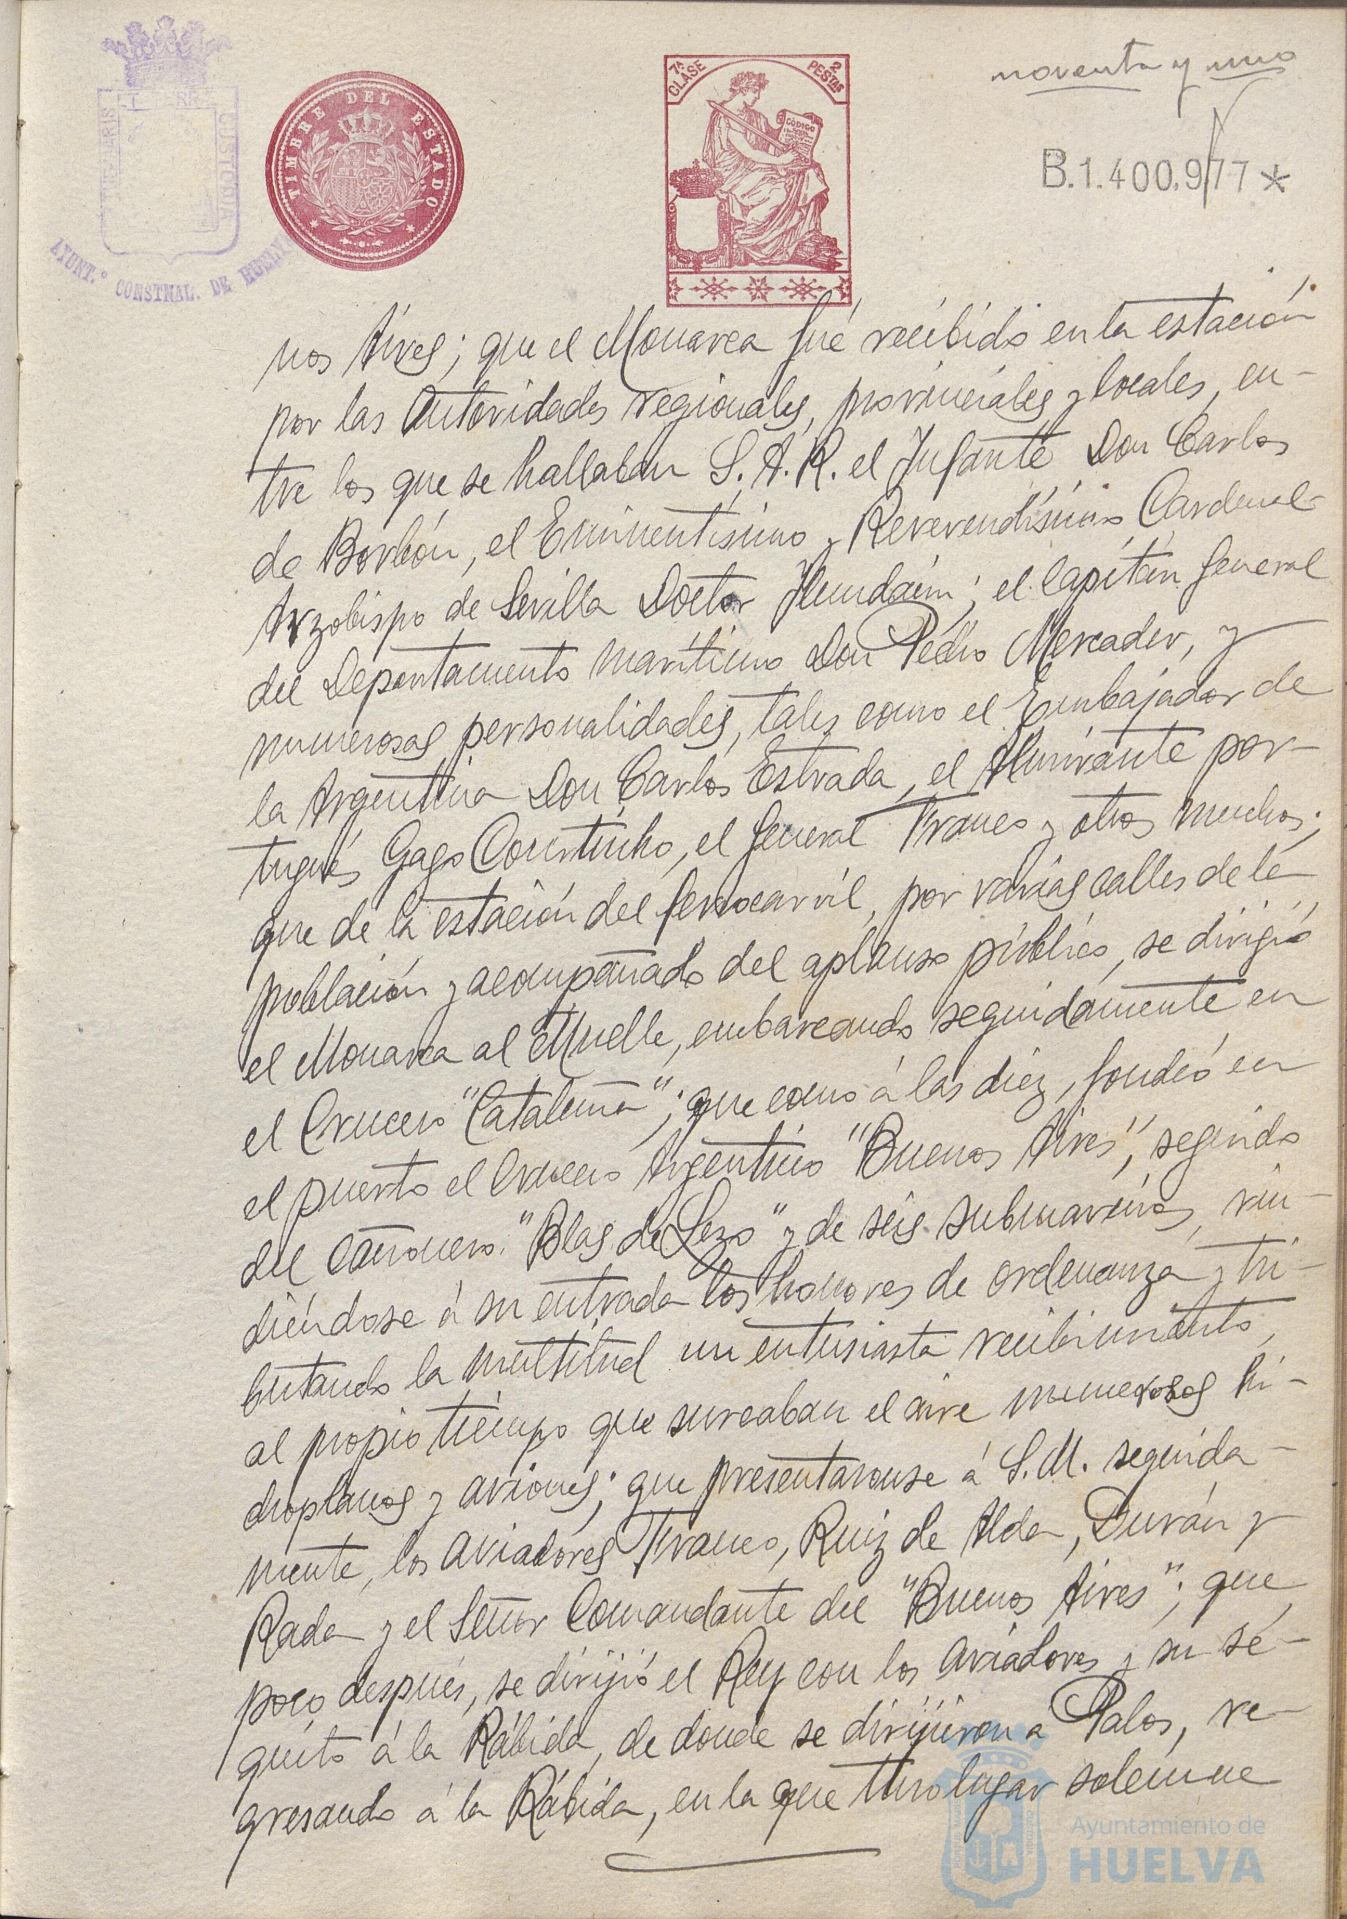 noventa y uno
TIMBRE DEL ESTADO
7ª CLASE
2 PESTAS
CODIGO
B.1.400.977 *
PORTUS MARIS
ET TERRÆ
CUSTODIA
AYUNT.º CONSTNAL. DE HUELVA
nos Aires; que el Monarca fué recibido en la estación
por las Autoridades regionales, provinciales y locales, en-
tre los que se hallaban S. A. R. el Infante Don Carlos
de Borbón, el Eminentísimo y Reverendísimo Cardenal
Arzobispo de Sevilla Doctor Ilundáin; el Capitán General
del Departamento marítimo Don Pedro Mercader, y
numerosas personalidades, tales como el Embajador de
la Argentina Don Carlos Estrada, el Almirante por-
tugués Gago Courtinho, el General Franco y otros muchos;
que de la estación del ferrocarril, por varias calles de la
población y acompañado del aplauso público, se dirigió
el Monarca al Muelle, embarcando seguidamente en
el Crucero "Cataluña"; que como á las diez, fondeó en
el puerto el Crucero Argentino "Buenos Aires", seguido
del Cañonero "Blas de Lezo" y de seis submarinos, rin-
diéndose á su entrada los honores de ordenanza y tri-
butando la multitud un entusiasta recibimiento,
al propio tiempo que surcaban el aire numerosos hi-
droplanos y aviones; que presentaronse á S. M. seguida-
mente, los aviadores Franco, Ruiz de Alda, Durán y
Rada y el Señor Comandante del "Buenos Aires"; que,
poco después, se dirijió el Rey con los Aviadores y su sé-
quito á la Rábida, de donde se dirijieron a Palos, re-
gresando á la Rábida, en la que tuvo lugar solemne
Ayuntamiento de
HUELVA